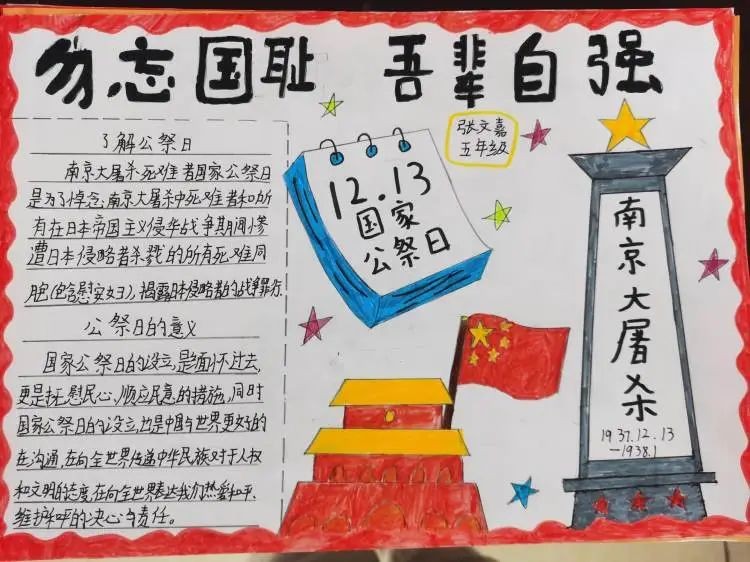 勿忘国耻 吾辈自强
了解公祭日
南京大屠杀死难者国家公祭日
是为了悼念南京大屠杀中死难者和所
有在日本帝国主义侵华战争期间惨
遭日本侵略者杀戮的所有死难同
胞(包含慰安妇),揭露日本侵略者的战争罪行.
公祭日的意义
国家公祭日的设立,是缅怀过去,
更是抚慰民心,顺应民意的措施,同时
国家公祭日的设立,也是中国与世界更好的
在沟通,在向全世界传递中华民族对于人权
和文明的态度,在向全世界表达我们热爱和平、
维护和平的决心与责任。
12.13
国家
公祭日
张文嘉
五年级
南京大屠杀
1937.12.13
—1938.1